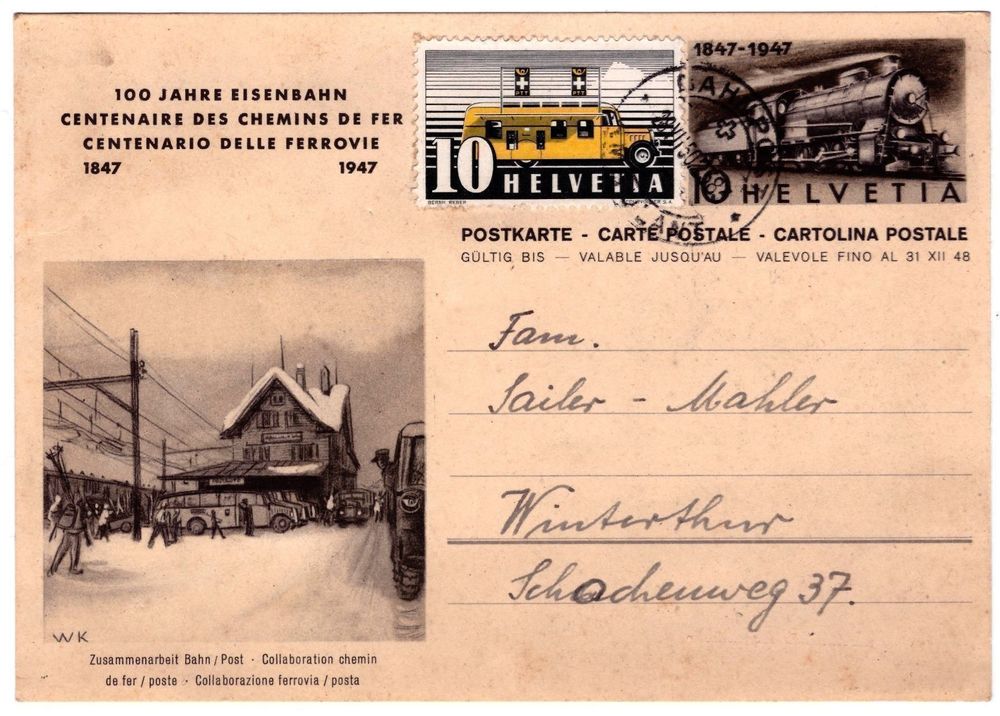 100 JAHRE EISENBAHN
CENTENAIRE DES CHEMINS DE FER
CENTENARIO DELLE FERROVIE
1847 1947
PTT PTT
10 HELVETIA
BERNH. REBER
1847-1947
10 HELVETIA
POSTKARTE - CARTE POSTALE - CARTOLINA POSTALE
GÜLTIG BIS — VALABLE JUSQU'AU — VALEVOLE FINO AL 31 XII 48
Fam.
Sailer - Mahler
Winterthur
Schachenweg 37.
WK
Zusammenarbeit Bahn / Post · Collaboration chemin
de fer / poste · Collaborazione ferrovia / posta